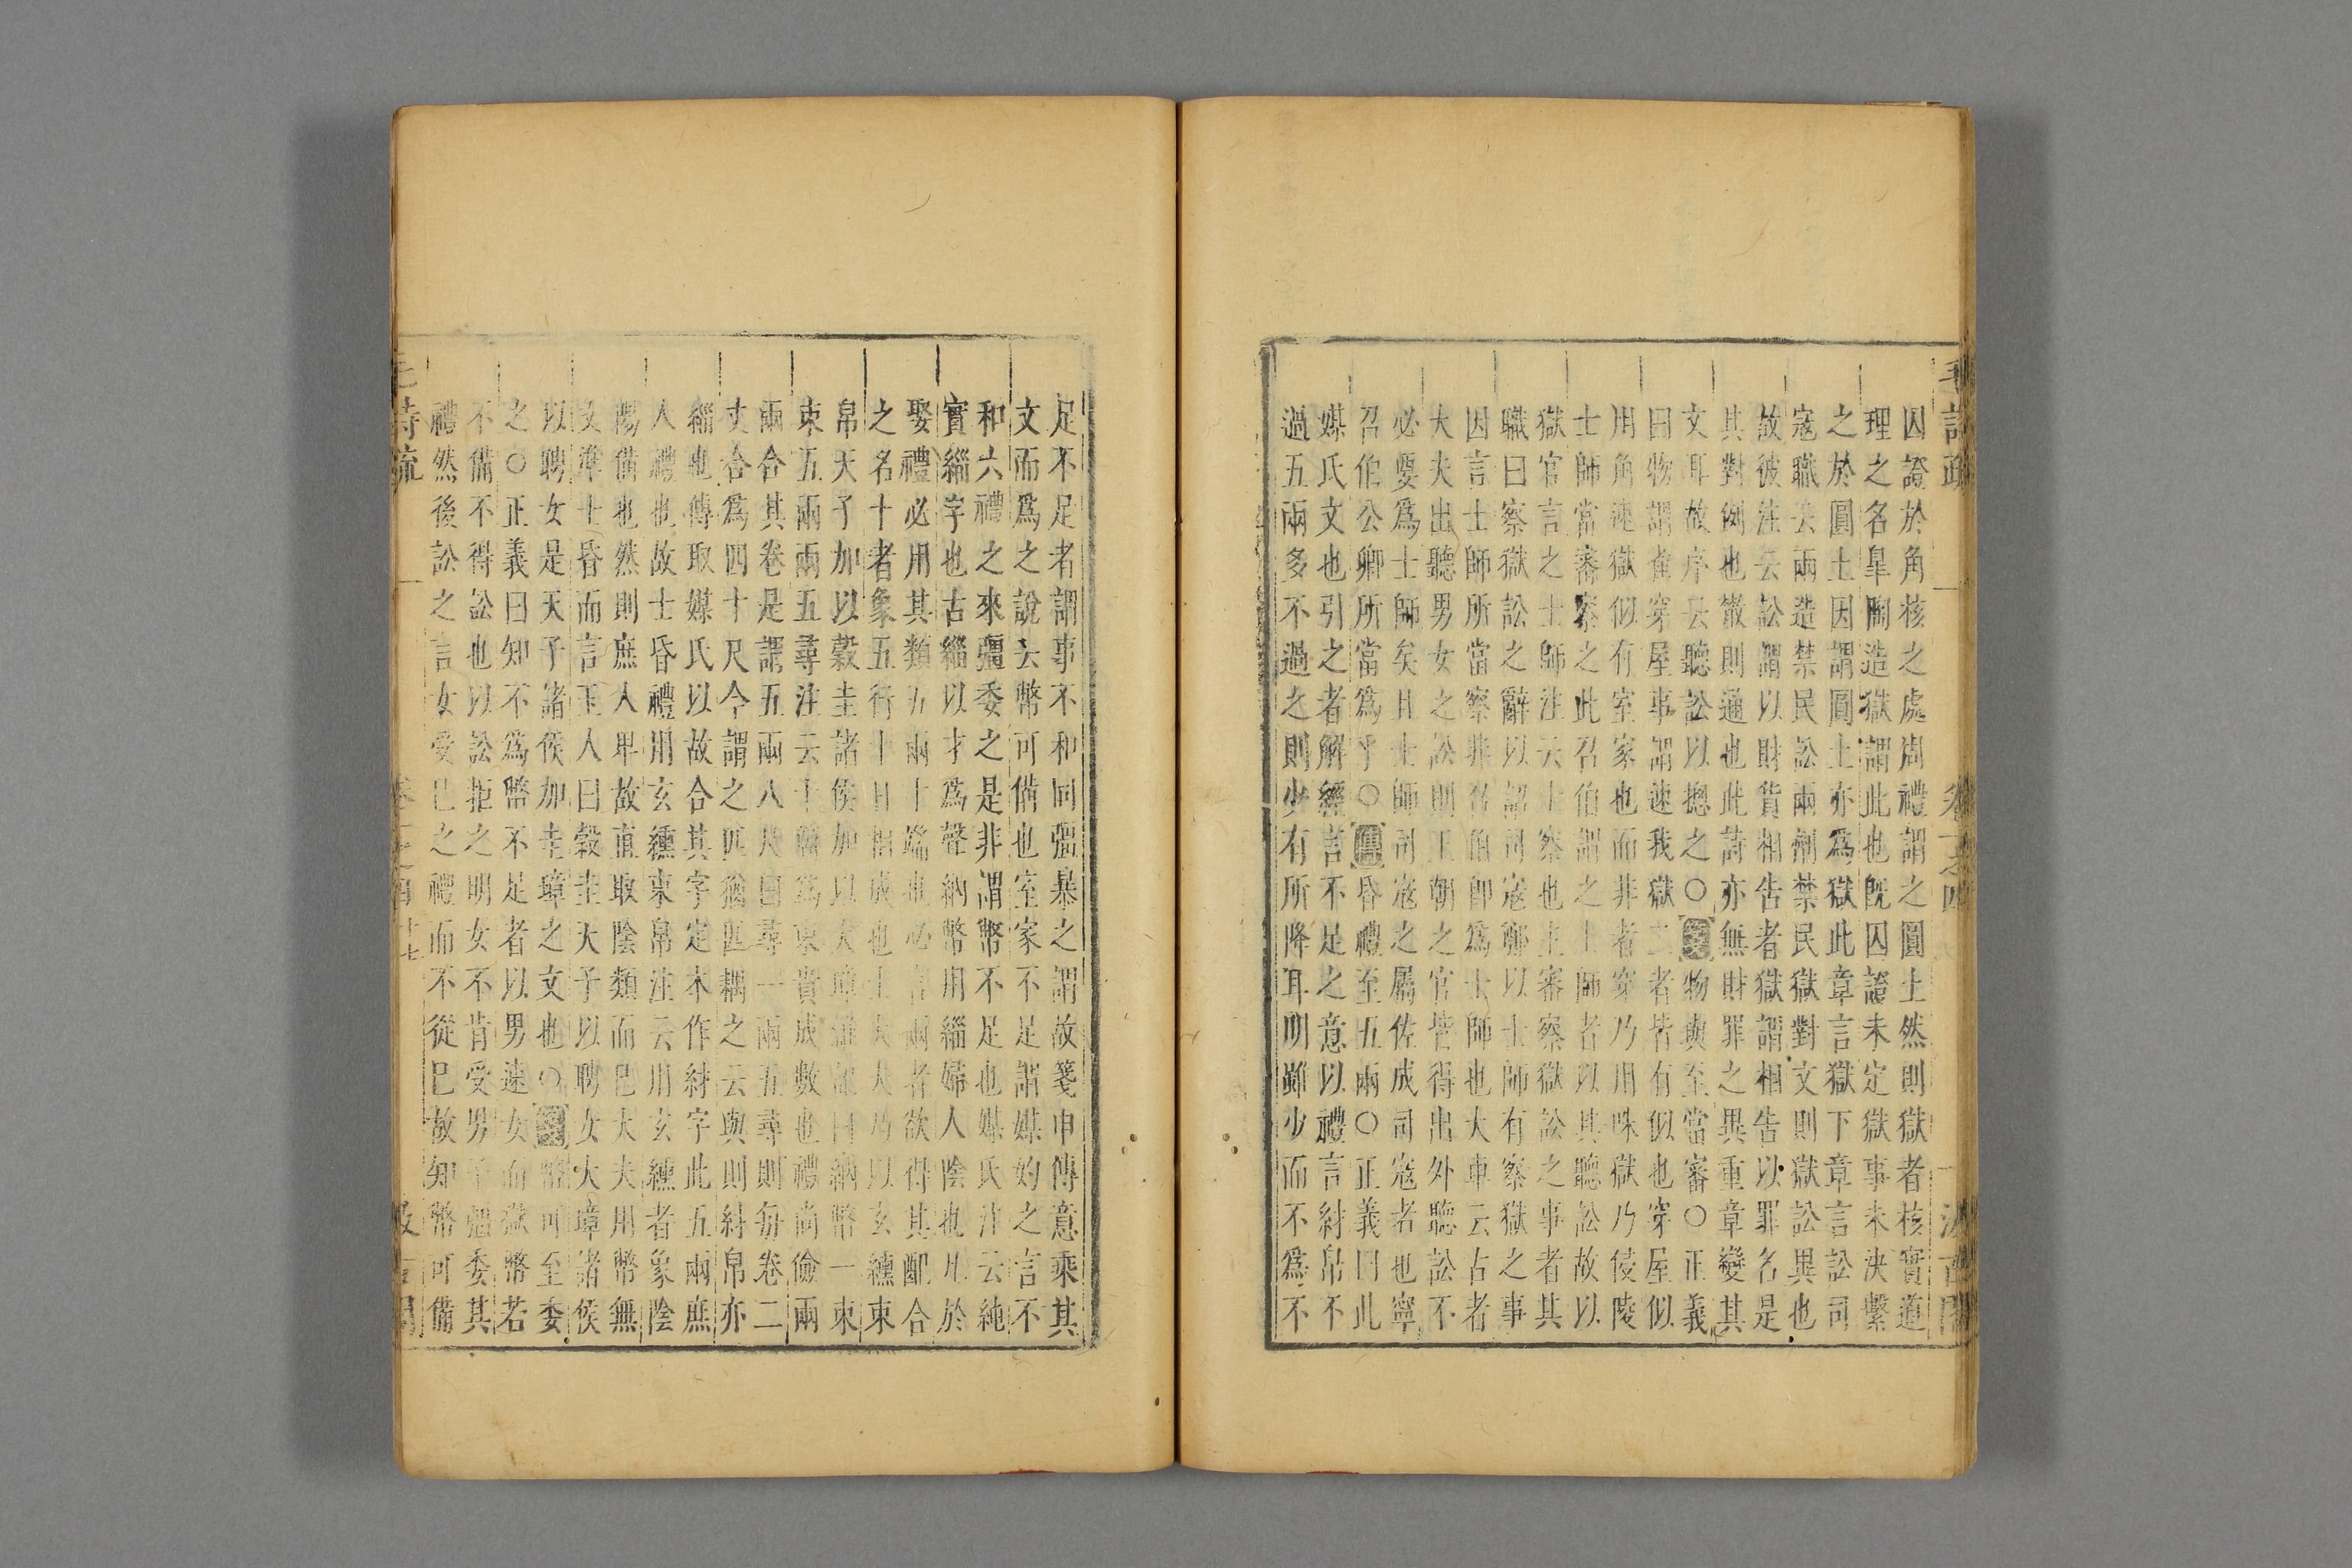 毛詩疏
卷一之四
汲古閣
囚證於角核之處周禮謂之圜土然則獄者核實道
理之名皐陶造獄謂此也旣囚證未定獄事未決繫
之於圜土因謂圜土亦爲獄此章言獄下章言訟司
寇職云兩造禁民訟兩劑禁民獄對文則獄訟異也
故彼注云訟謂以財貨相告者獄謂相告以罪名是
其對例也散則通也此詩亦無財罪之異重章變其
文耳故序云聽訟以摠之○箋物與至當審○正義
曰物謂雀穿屋事謂速我獄二者皆有似也穿屋似
用角速獄似有室家也而非者穿乃用咮獄乃侵陵
士師當審察之此召伯謂之士師者以其聽訟故以
獄官言之士師注云士察也主審察獄訟之事者其
職曰察獄訟之辭以詔司寇鄭以士師有察獄之事
因言士師所當察非召伯卽爲士師也大車云古者
大夫出聽男女之訟則王朝之官皆得出外聽訟不
必要爲士師矣且士師司寇之屬佐成司寇者也寧
召伯公卿所當爲乎○傳昏禮至五兩○正義曰此
媒氏文也引之者解經言不足之意以禮言紂帛不
過五兩多不過之則少有所降耳明雖少而不爲不
足不足者謂事不和同彊暴之謂故箋申傳意乘其
文而爲之說云幣可備也室家不足謂媒妁之言不
和六禮之來彊委之是非謂幣不足也媒氏注云純
實緇字也古緇以才爲聲納幣用緇婦人陰也凡於
娶禮必用其類五兩十端也必言兩者欲得其配合
之名十者象五行十日相成也士大夫乃以玄纁束
帛天子加以穀圭諸侯加以大璋雜記曰納幣一束
束五兩兩五尋注云十箇爲束貴成數也禮尚儉兩
兩合其卷是謂五兩八尺曰尋一兩五尋則每卷二
丈合爲四十尺今謂之匹猶匹耦之云與則紂帛亦
緇也傳取媒氏以故合其字定本作紂字此五兩庶
人禮也故士昏禮用玄纁束帛注云用玄纁者象陰
陽備也然則庶人卑故直取陰類而已大夫用幣無
文準士昏而言玉人曰穀圭天子以聘女大璋諸侯
以聘女是天子諸侯加圭璋之文也○箋幣可至委
之○正義曰知不爲幣不足者以男速女而獄幣若
不備不得訟也以訟拒之明女不肯受男子彊委其
禮然後訟之言女受已之禮而不從已故知幣可備
毛詩疏
卷一之四
十七
汲古閣